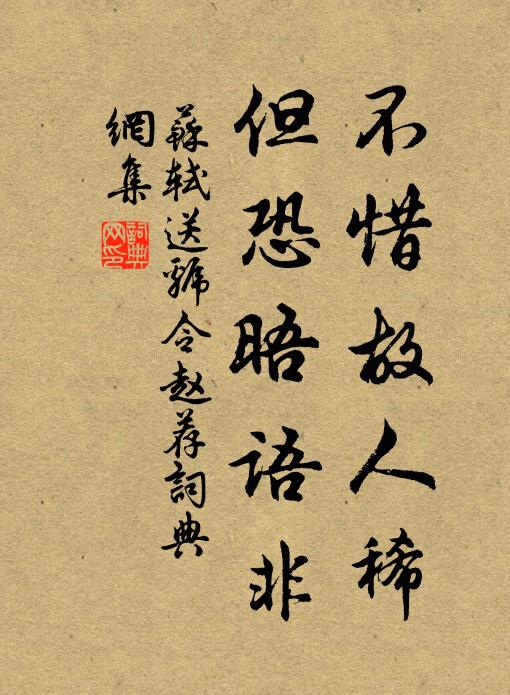 不惜故人稀
但恐晤语非
蘇軾送號令赵荐詞典
網集
詞典網印